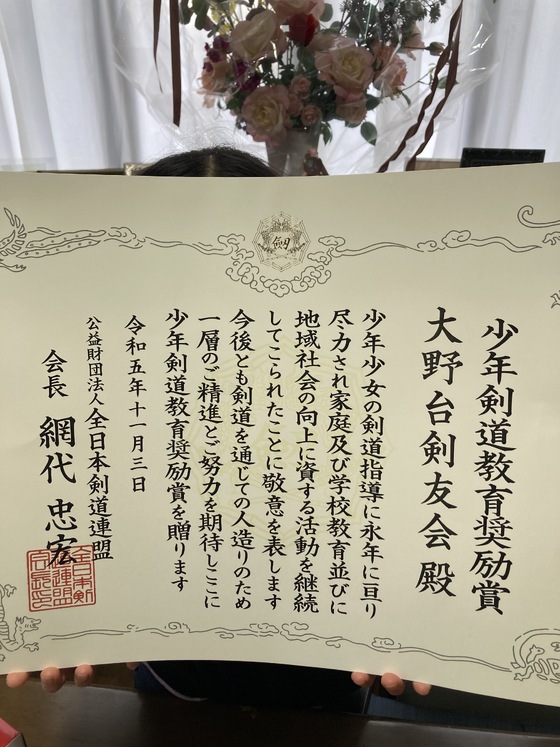 少年剣道教育奨励賞
大野台剣友会殿
少年少女の剣道指導に永年に亘り
尽力され家庭及び学校教育並びに
地域社会の向上に資する活動を継続
してこられたことに敬意を表します
今後とも剣道を通じての人造りのため
一層のご精進とご努力を期待しここに
少年剣道教育奨励賞を贈ります
令和五年十一月三日
公益財団法人全日本剣道連盟
会長 網代忠宏